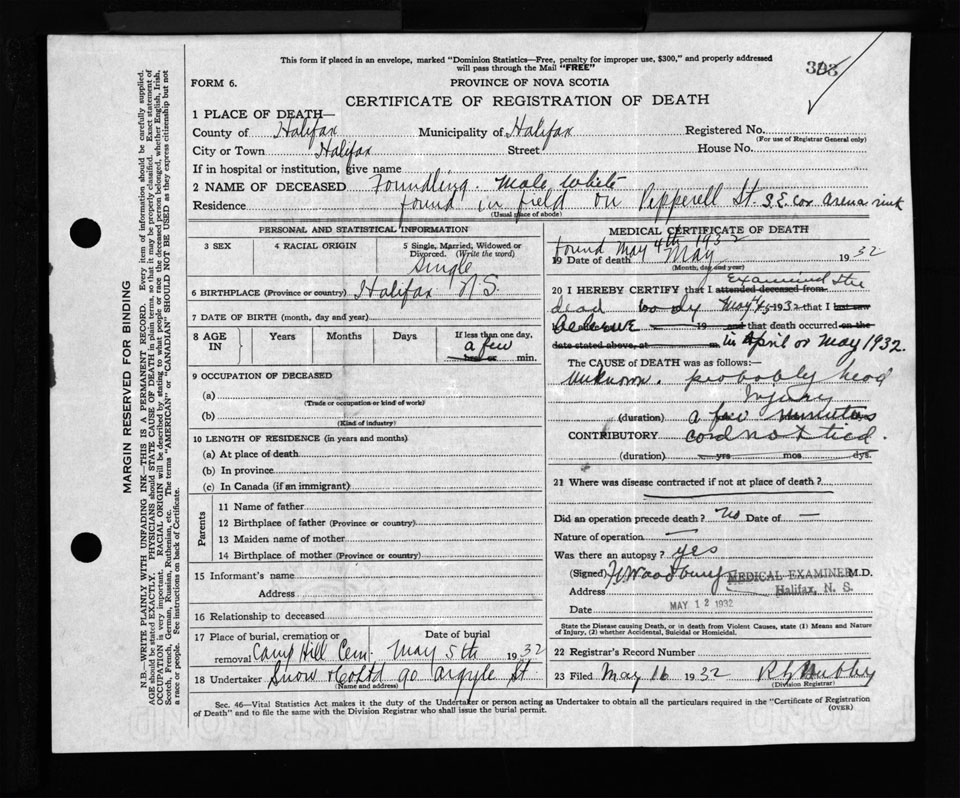 This form if placed in an envelope, marked "Dominion Statistics—Free, penalty for improper use, $300," and properly addressed
will pass through the Mail "FREE"
FORM 6.
PROVINCE OF NOVA SCOTIA
CERTIFICATE OF REGISTRATION OF DEATH
1 PLACE OF DEATH—
County of Halifax Municipality of Halifax Registered No.
(For use of Registrar General only)
City or Town Halifax Street House No.
If in hospital or institution, give name
2 NAME OF DECEASED Foundling. Male White
Residence found in field on Pepperell St. S.E. cor arena rink
(Usual place of abode)
PERSONAL AND STATISTICAL INFORMATION
3 SEX 4 RACIAL ORIGIN 5 Single, Married, Widowed or Divorced. (Write the word)
Single
6 BIRTHPLACE (Province or country) Halifax N.S.
7 DATE OF BIRTH (month, day and year)
8 AGE IN Years Months Days If less than one day,
a few
hrs or min.
9 OCCUPATION OF DECEASED
(a)
(Trade or occupation or kind of work)
(b)
(Kind of industry)
10 LENGTH OF RESIDENCE (in years and months)
(a) At place of death
(b) In province
(c) In Canada (if an immigrant)
Parents
11 Name of father
12 Birthplace of father (Province or country)
13 Maiden name of mother
14 Birthplace of mother (Province or country)
15 Informant's name
Address
16 Relationship to deceased
17 Place of burial, cremation or removal Camp Hill Cem. Date of burial May 5th 1932
18 Undertaker Snow & Co Ltd 90 Argyle St.
(Name and address)
MEDICAL CERTIFICATE OF DEATH
found May 4th 1932
19 Date of death May 1932
(Month, day and year)
20 I HEREBY CERTIFY that I attended deceased from Examined the
dead body May 4, 1932 that I last saw
19 and that death occurred on the
date stated above, at m. in April or May 1932.
The CAUSE OF DEATH was as follows:—
Unknown. probably head
Injury
(duration) a few minutes
CONTRIBUTORY cord not tied.
(duration) yrs mos dys.
21 Where was disease contracted if not at place of death?
Did an operation precede death? No Date of —
Nature of operation —
Was there an autopsy? yes
(Signed) Woodbury MEDICAL EXAMINER M.D.
Address Halifax, N. S.
Date MAY 12 1932
State the Disease causing Death, or in death from Violent Causes, state (1) Means and Nature of Injury, (2) whether Accidental, Suicidal or Homicidal.
22 Registrar's Record Number
23 Filed May 16 1932
(Division Registrar)
Sec. 46—Vital Statistics Act makes it the duty of the Undertaker or person acting as Undertaker to obtain all the particulars required in the "Certificate of Registration
of Death" and to file the same with the Division Registrar who shall issue the burial permit.
(OVER)
MARGIN RESERVED FOR BINDING
N.B.—WRITE PLAINLY WITH UNFADING INK—THIS IS A PERMANENT RECORD. Every item of information should be carefully supplied.
AGE should be stated EXACTLY. PHYSICIANS should STATE CAUSE OF DEATH in plain terms, so that it may be properly classified. Exact statement of
OCCUPATION is very important. RACIAL ORIGIN will be described by stating to what people or race the deceased person belonged, whether English, Irish,
Scotch, French, German, Russian, Ruthenian, etc. The terms "AMERICAN" or "CANADIAN" SHOULD NOT BE USED as they express citizenship but not
a race or people. See instructions on back of Certificate.